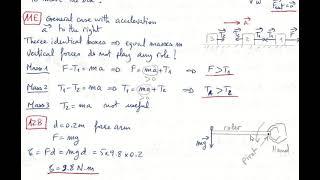 11E General case with acceleration
a to the right
Three identical boxes ⇒ equal masses m
Vertical forces do not play any role!
Mass 1 F-T₁ = ma ⇒ F = ma + T₁ ⇒ F > T₁
>0
Mass 2 T₁-T₂ = ma ⇒ T₁ = ma + T₂ ⇒ T₁ > T₂
>0
Mass 3 T₂ = ma not useful
12B d = 0.2m force arm
F = mg
τ = Fd = mgd = 5x9.8x0.2
τ = 9.8 N.m
mg
Pivot
Hand